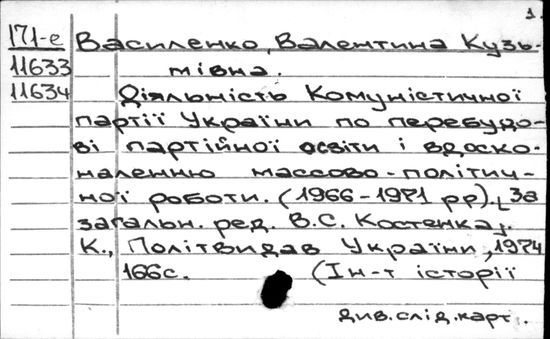 1.
171-е Василенко, Валентина Кузь-
11633 мівна.
11634 Діяльність Комуністичної
партії України по перебудо-
ві партійної освіти і вдоско-
наленню массово-політич-
ної роботи. (1966-1971 рр). [За
загальн. ред. В.С. Костенка].
К., Політвидав України, 1974
166с. (Ін-т історії
див.слід.карт.